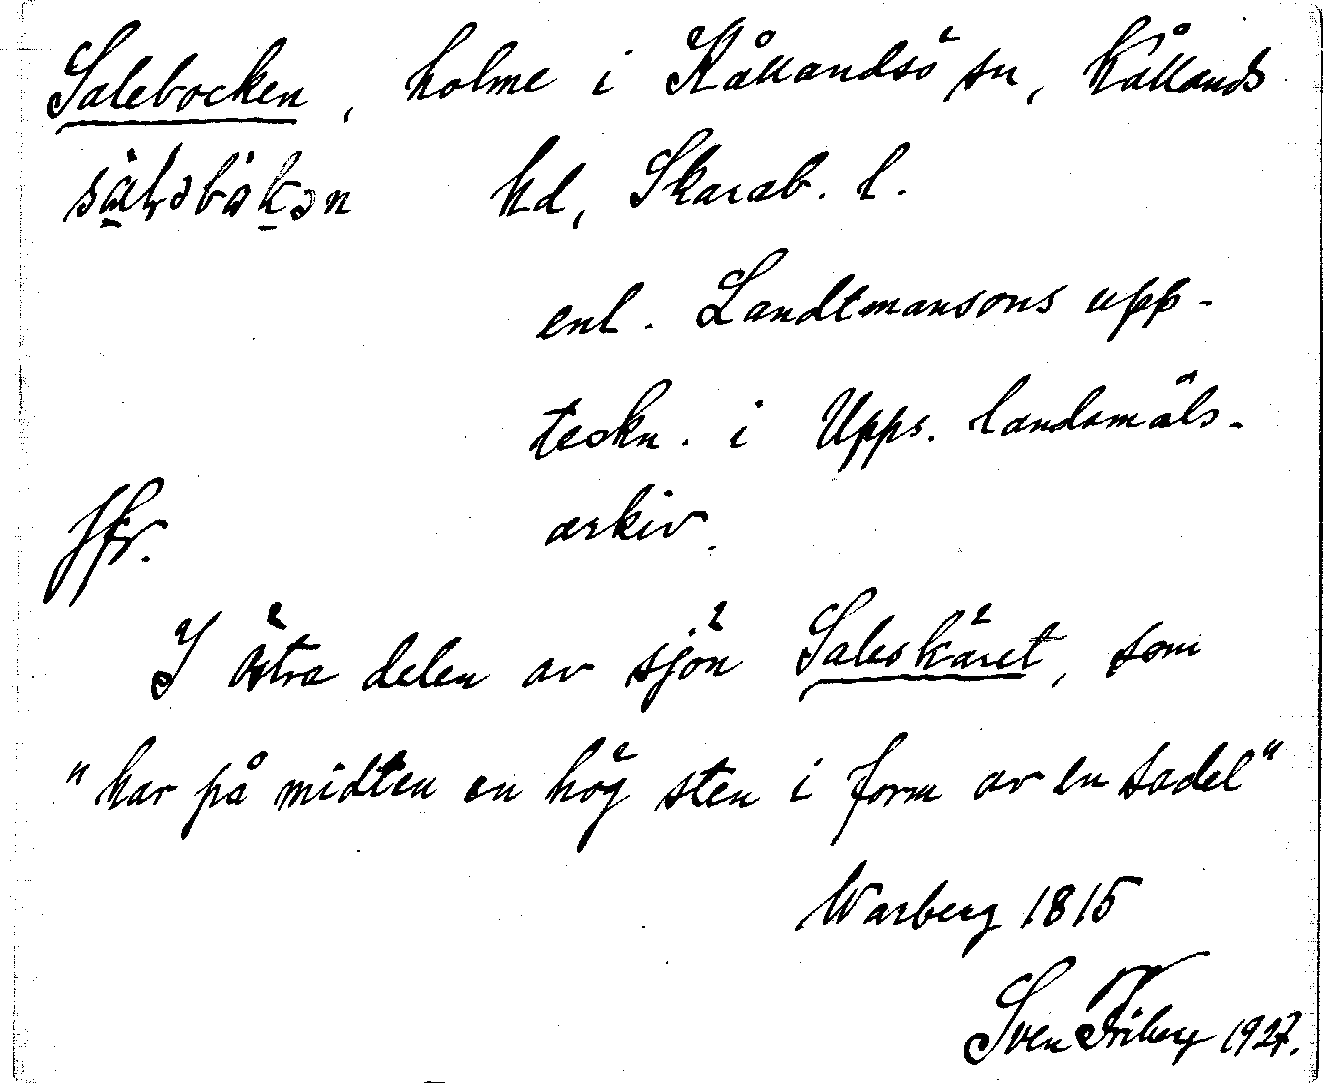 Salebocken, holme i Kållandsö sn, Kållands
hd, Skarab. l.
enl. Landtmansons upp-
teckn. i Upps. landsmåls-
arkiv.
Jfr.
I östra delen av sjön Saleskäret, som
"har på midten en hög sten i form av en sadel"
Warberg 1815
Sven Friberg 1927.